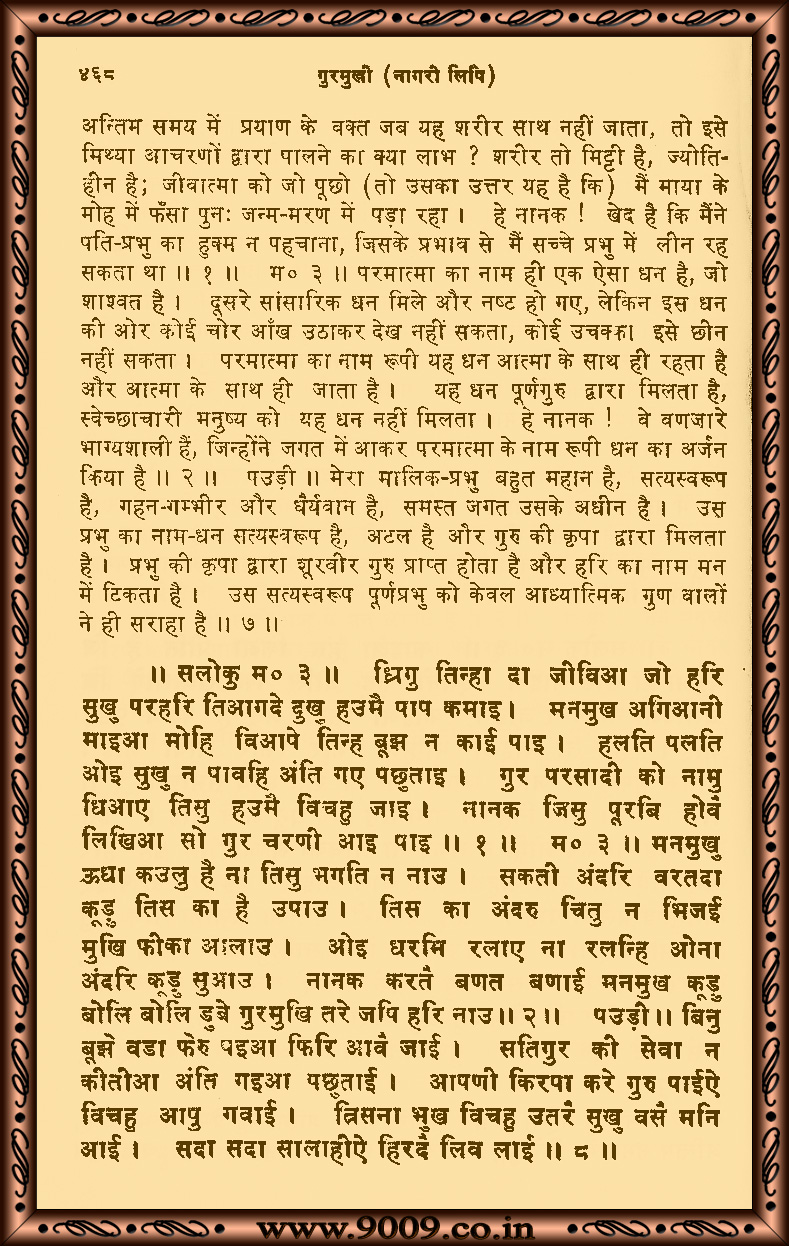 ४६८ गुरमुखी (नागरी लिपि)
अन्तिम समय में प्रयाण के वक्त जब यह शरीर साथ नहीं जाता, तो इसे
मिथ्या आचरणों द्वारा पालने का क्या लाभ ? शरीर तो मिट्टी है, ज्योति-
हीन है; जीवात्मा को जो पूछो (तो उसका उत्तर यह है कि) मैं माया के
मोह में फँसा पुनः जन्म-मरण में पड़ा रहा । हे नानक ! खेद है कि मैंने
पति-प्रभु का हुक्म न पहचाना, जिसके प्रभाव से मैं सच्चे प्रभु में लीन रह
सकता था ॥ १ ॥ म० ३ ॥ परमात्मा का नाम ही एक ऐसा धन है, जो
शाश्वत है । दूसरे सांसारिक धन मिले और नष्ट हो गए, लेकिन इस धन
की ओर कोई चोर आँख उठाकर देख नहीं सकता, कोई उचक्का इसे छीन
नहीं सकता । परमात्मा का नाम रूपी यह धन आत्मा के साथ ही रहता है
और आत्मा के साथ ही जाता है । यह धन पूर्णगुरु द्वारा मिलता है,
स्वेच्छाचारी मनुष्य को यह धन नहीं मिलता । हे नानक ! वे वणजारे
भाग्यशाली हैं, जिन्होंने जगत में आकर परमात्मा के नाम रूपी धन का अर्जन
किया है ॥ २ ॥ पउड़ी ॥ मेरा मालिक-प्रभु बहुत महान है, सत्यस्वरूप
है, गहन-गम्भीर और धैर्यवान है, समस्त जगत उसके अधीन है । उस
प्रभु का नाम-धन सत्यस्वरूप है, अटल है और गुरु की कृपा द्वारा मिलता
है । प्रभु की कृपा द्वारा शूरवीर गुरु प्राप्त होता है और हरि का नाम मन
में टिकता है । उस सत्यस्वरूप पूर्णप्रभु को केवल आध्यात्मिक गुण वालों
ने ही सराहा है ॥ ७ ॥
॥ सलोकु म० ३ ॥ ध्रिगु तिन्हा दा जीविआ जो हरि
सुखु परहरि तिआगदे दुखु हउमै पाप कमाइ । मनमुख अगिआनी
माइआ मोहि विआपे तिन्ह बूझ न काई पाइ । हलति पलति
ओइ सुखु न पावहि अंति गए पछुताइ । गुर परसादी को नामु
धिआए तिसु हउमै विचहु जाइ । नानक जिसु पूरबि होवै
लिखिआ सो गुर चरणी आइ पाइ ॥ १ ॥ म० ३ ॥ मनमुखु
ऊधा कउलु है ना तिसु भगति न नाउ । सकती अंदरि वरतदा
कूड़ु तिस का है उपाउ । तिस का अंदरु चितु न भिजई
मुखि फीका आलाउ । ओइ धरमि रलाए ना रलन्हि ओना
अंदरि कूड़ु सुआउ । नानक करतै बणत बणाई मनमुख कूड़ु
बोलि बोलि डुबे गुरमुखि तरे जपि हरि नाउ ॥ २ ॥ पउड़ी ॥ बिनु
बूझे वडा फेरु पइआ फिरि आवै जाई । सतिगुर की सेवा न
कीतीआ अंति गइआ पछुताई । आपणी किरपा करे गुरु पाईऐ
विचहु आपु गवाई । त्रिसना भुख विचहु उतरै सुखु वसै मनि
आई । सदा सदा सालाहीऐ हिरदै लिव लाई ॥ ८ ॥
www.9009.co.in